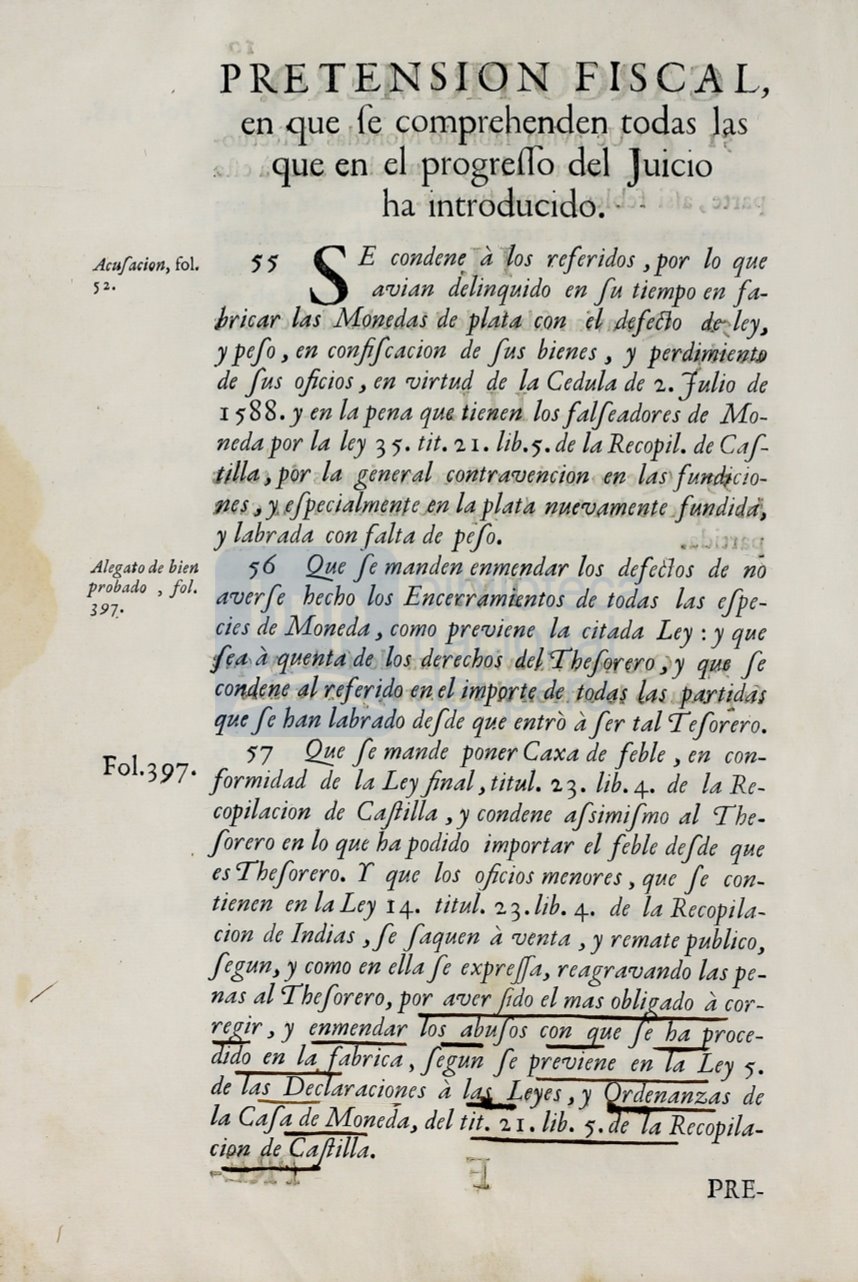 PRETENSION FISCAL,
en que ſe comprehenden todas las
que en el progreſſo del Juicio
ha introducido.
Acuſacion, fol.
52.
55 SE condene à los referidos, por lo que
avian delinquido en ſu tiempo en fa-
bricar las Monedas de plata con el defecto de ley,
y peſo, en confiſcacion de ſus bienes, y perdimiento
de ſus oficios, en virtud de la Cedula de 2. Julio de
1588. y en la pena que tienen los falſeadores de Mo-
neda por la ley 35. tit. 21. lib. 5. de la Recopil. de Caſ-
tilla, por la general contravencion en las fundicio-
nes, y eſpecialmente en la plata nuevamente fundida,
y labrada con falta de peſo.
Alegato de bien
probado, fol.
397.
56 Que ſe manden enmendar los defectos de no
averſe hecho los Encerramientos de todas las eſpe-
cies de Moneda, como previene la citada Ley: y que
ſea à quenta de los derechos del Theſorero, y que ſe
condene al referido en el importe de todas las partidas
que ſe han labrado deſde que entrò à ſer tal Teſorero.
Fol. 397.
57 Que ſe mande poner Caxa de feble, en con-
formidad de la Ley final, titul. 23. lib. 4. de la Re-
copilacion de Caſtilla, y condene aſsimiſmo al The-
ſorero en lo que ha podido importar el feble deſde que
es Theſorero. Y que los oficios menores, que ſe con-
tienen en la Ley 14. titul. 23. lib. 4. de la Recopila-
cion de Indias, ſe ſaquen à venta, y remate publico,
ſegun, y como en ella ſe expreſſa, reagravando las pe-
nas al Theſorero, por aver ſido el mas obligado à cor-
regir, y enmendar los abuſos con que ſe ha proce-
dido en la fabrica, ſegun ſe previene en la Ley 5.
de las Declaraciones à las Leyes, y Ordenanzas de
la Caſa de Moneda, del tit. 21. lib. 5. de la Recopila-
cion de Caſtilla.
PRE-